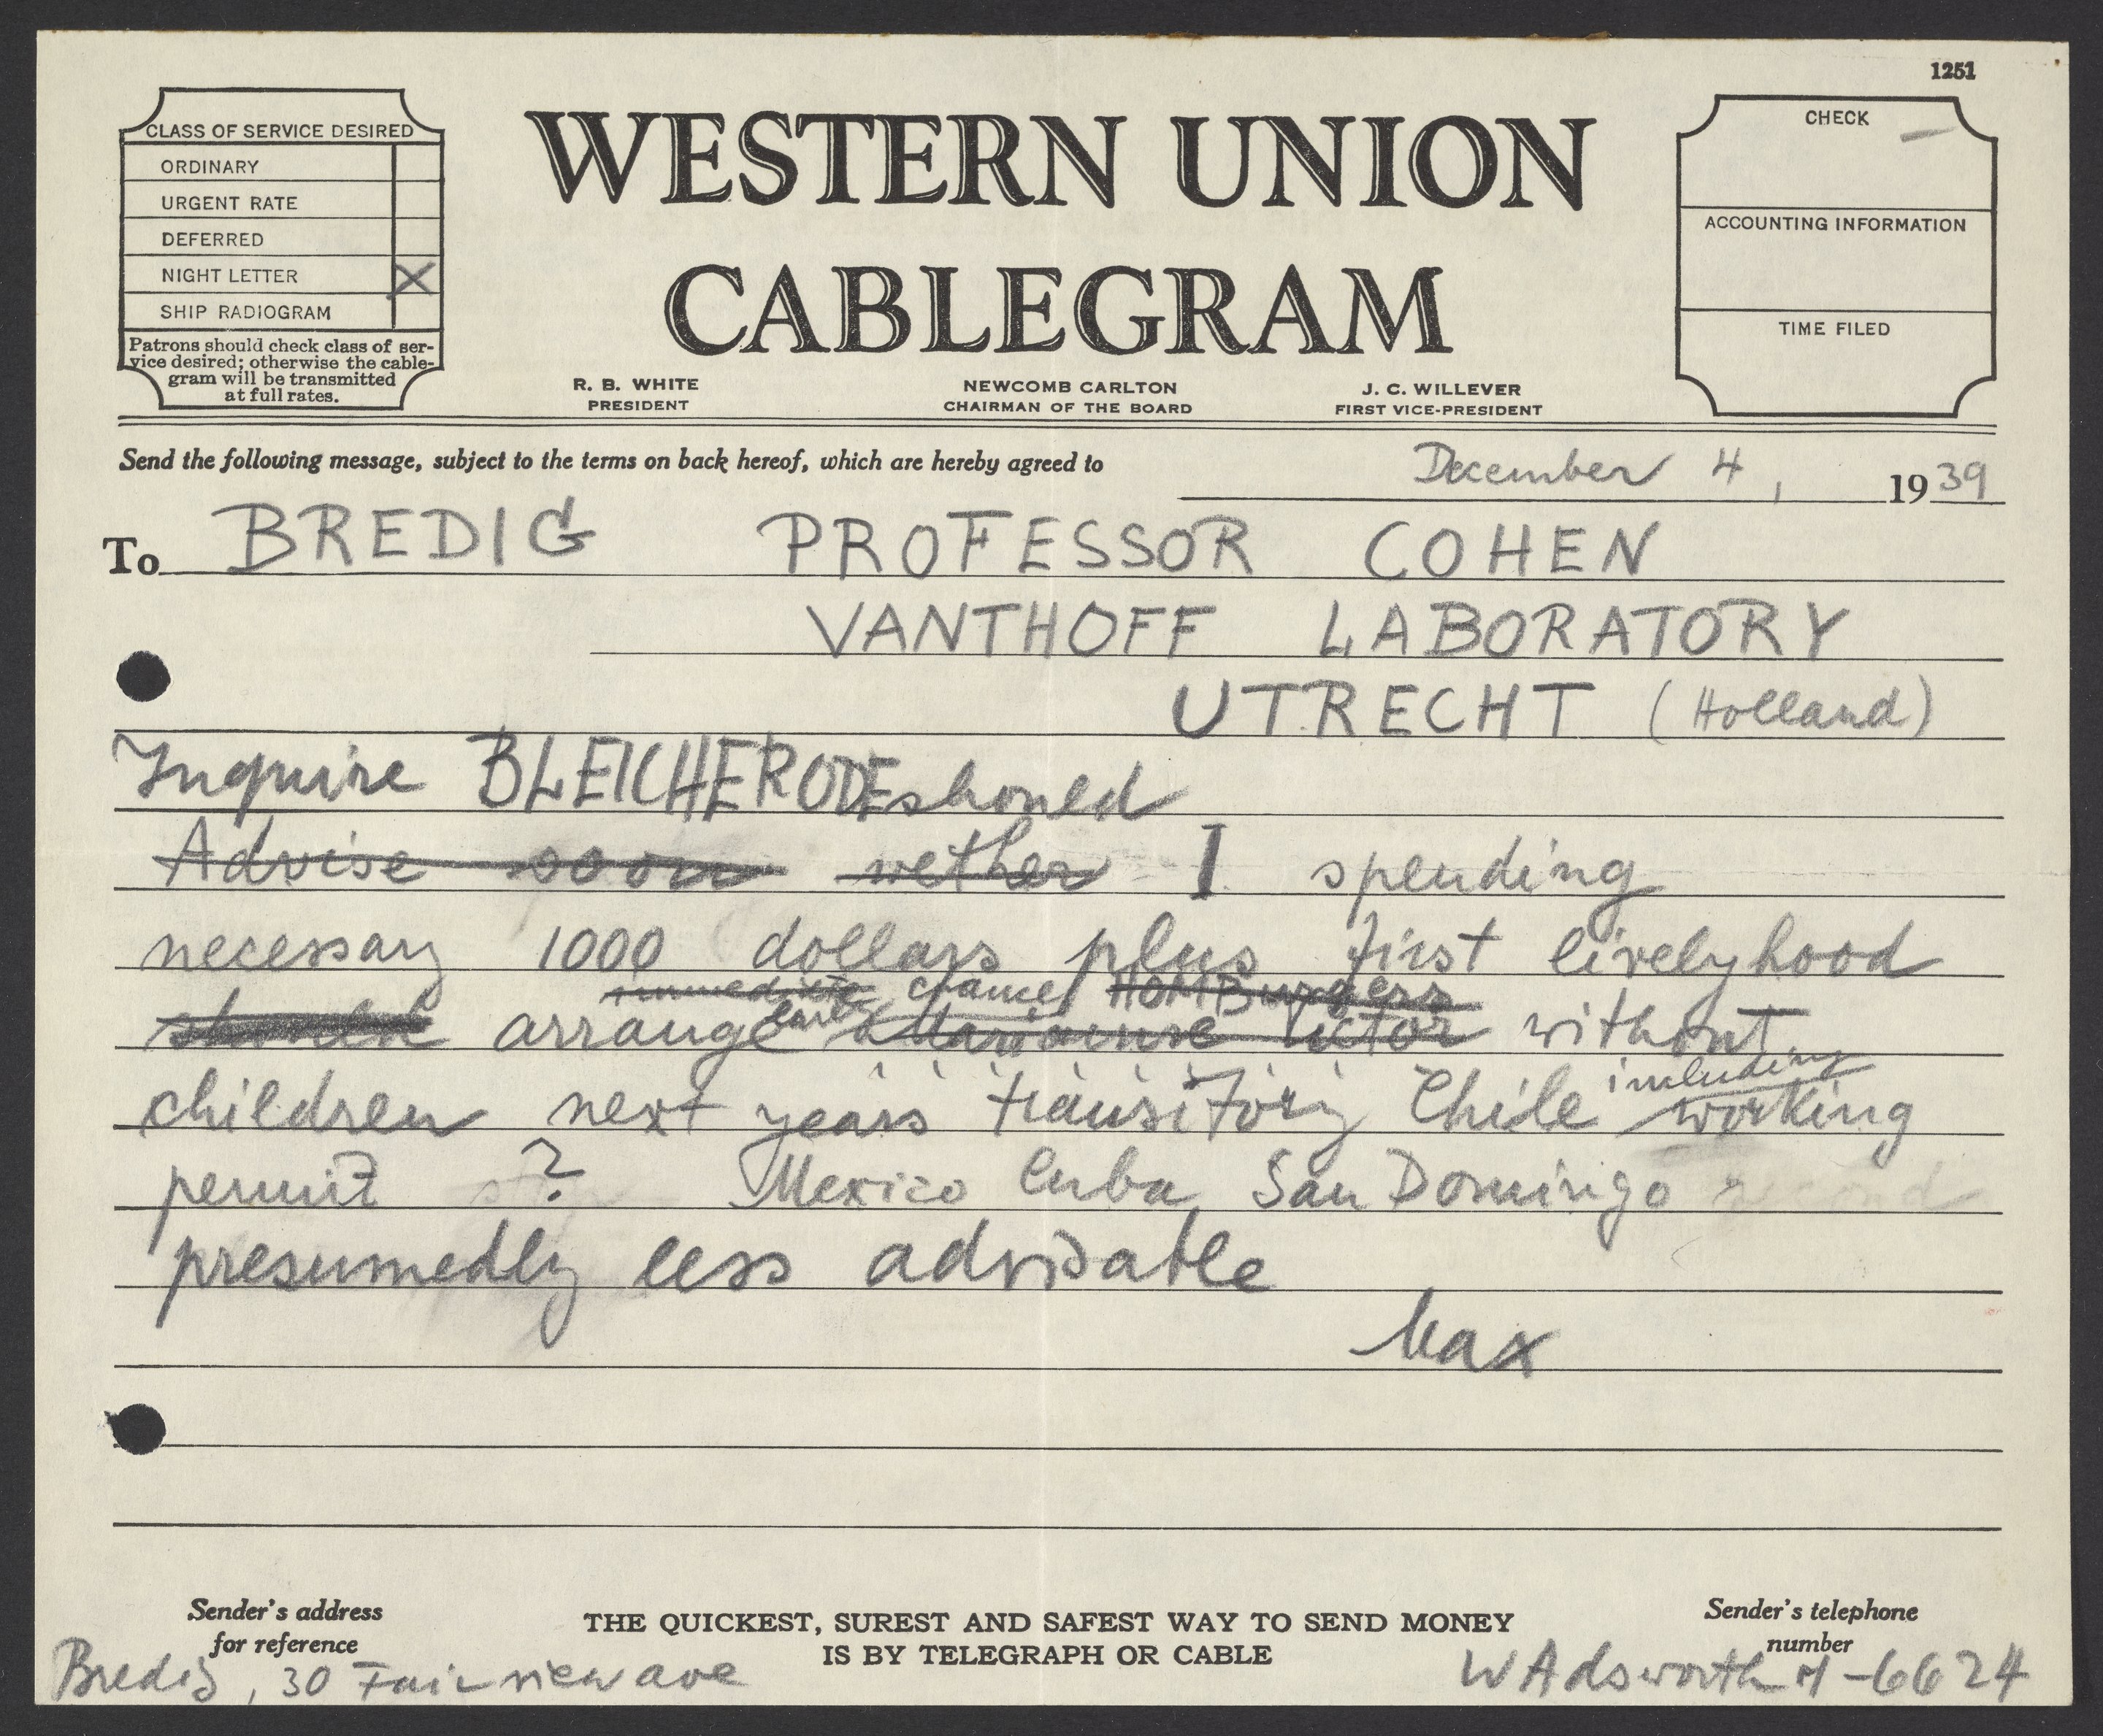 1251
CLASS OF SERVICE DESIRED
ORDINARY
URGENT RATE
DEFERRED
NIGHT LETTER X
SHIP RADIOGRAM
Patrons should check class of ser-
vice desired; otherwise the cable-
gram will be transmitted
at full rates.
WESTERN UNION
CABLEGRAM
R. B. WHITE
PRESIDENT
NEWCOMB CARLTON
CHAIRMAN OF THE BOARD
J. C. WILLEVER
FIRST VICE-PRESIDENT
CHECK
ACCOUNTING INFORMATION
TIME FILED
Send the following message, subject to the terms on back hereof, which are hereby agreed to
December 4, 1939
To BREDIG PROFESSOR COHEN
VANTHOFF LABORATORY
UTRECHT (Holland)
Inquire BLEICHERODE should
Advise soon wether I spending
necessary 1000 dollars plus first livelyhood
immediate chance
arrange without
including
children next years transitory Chile working
permit ? Mexico Cuba San Domingo
presumedly less advisable
Max
Sender's address
for reference
THE QUICKEST, SUREST AND SAFEST WAY TO SEND MONEY
IS BY TELEGRAPH OR CABLE
Sender's telephone
number
Bredig, 30 Fairview ave
WAdsworth -6624